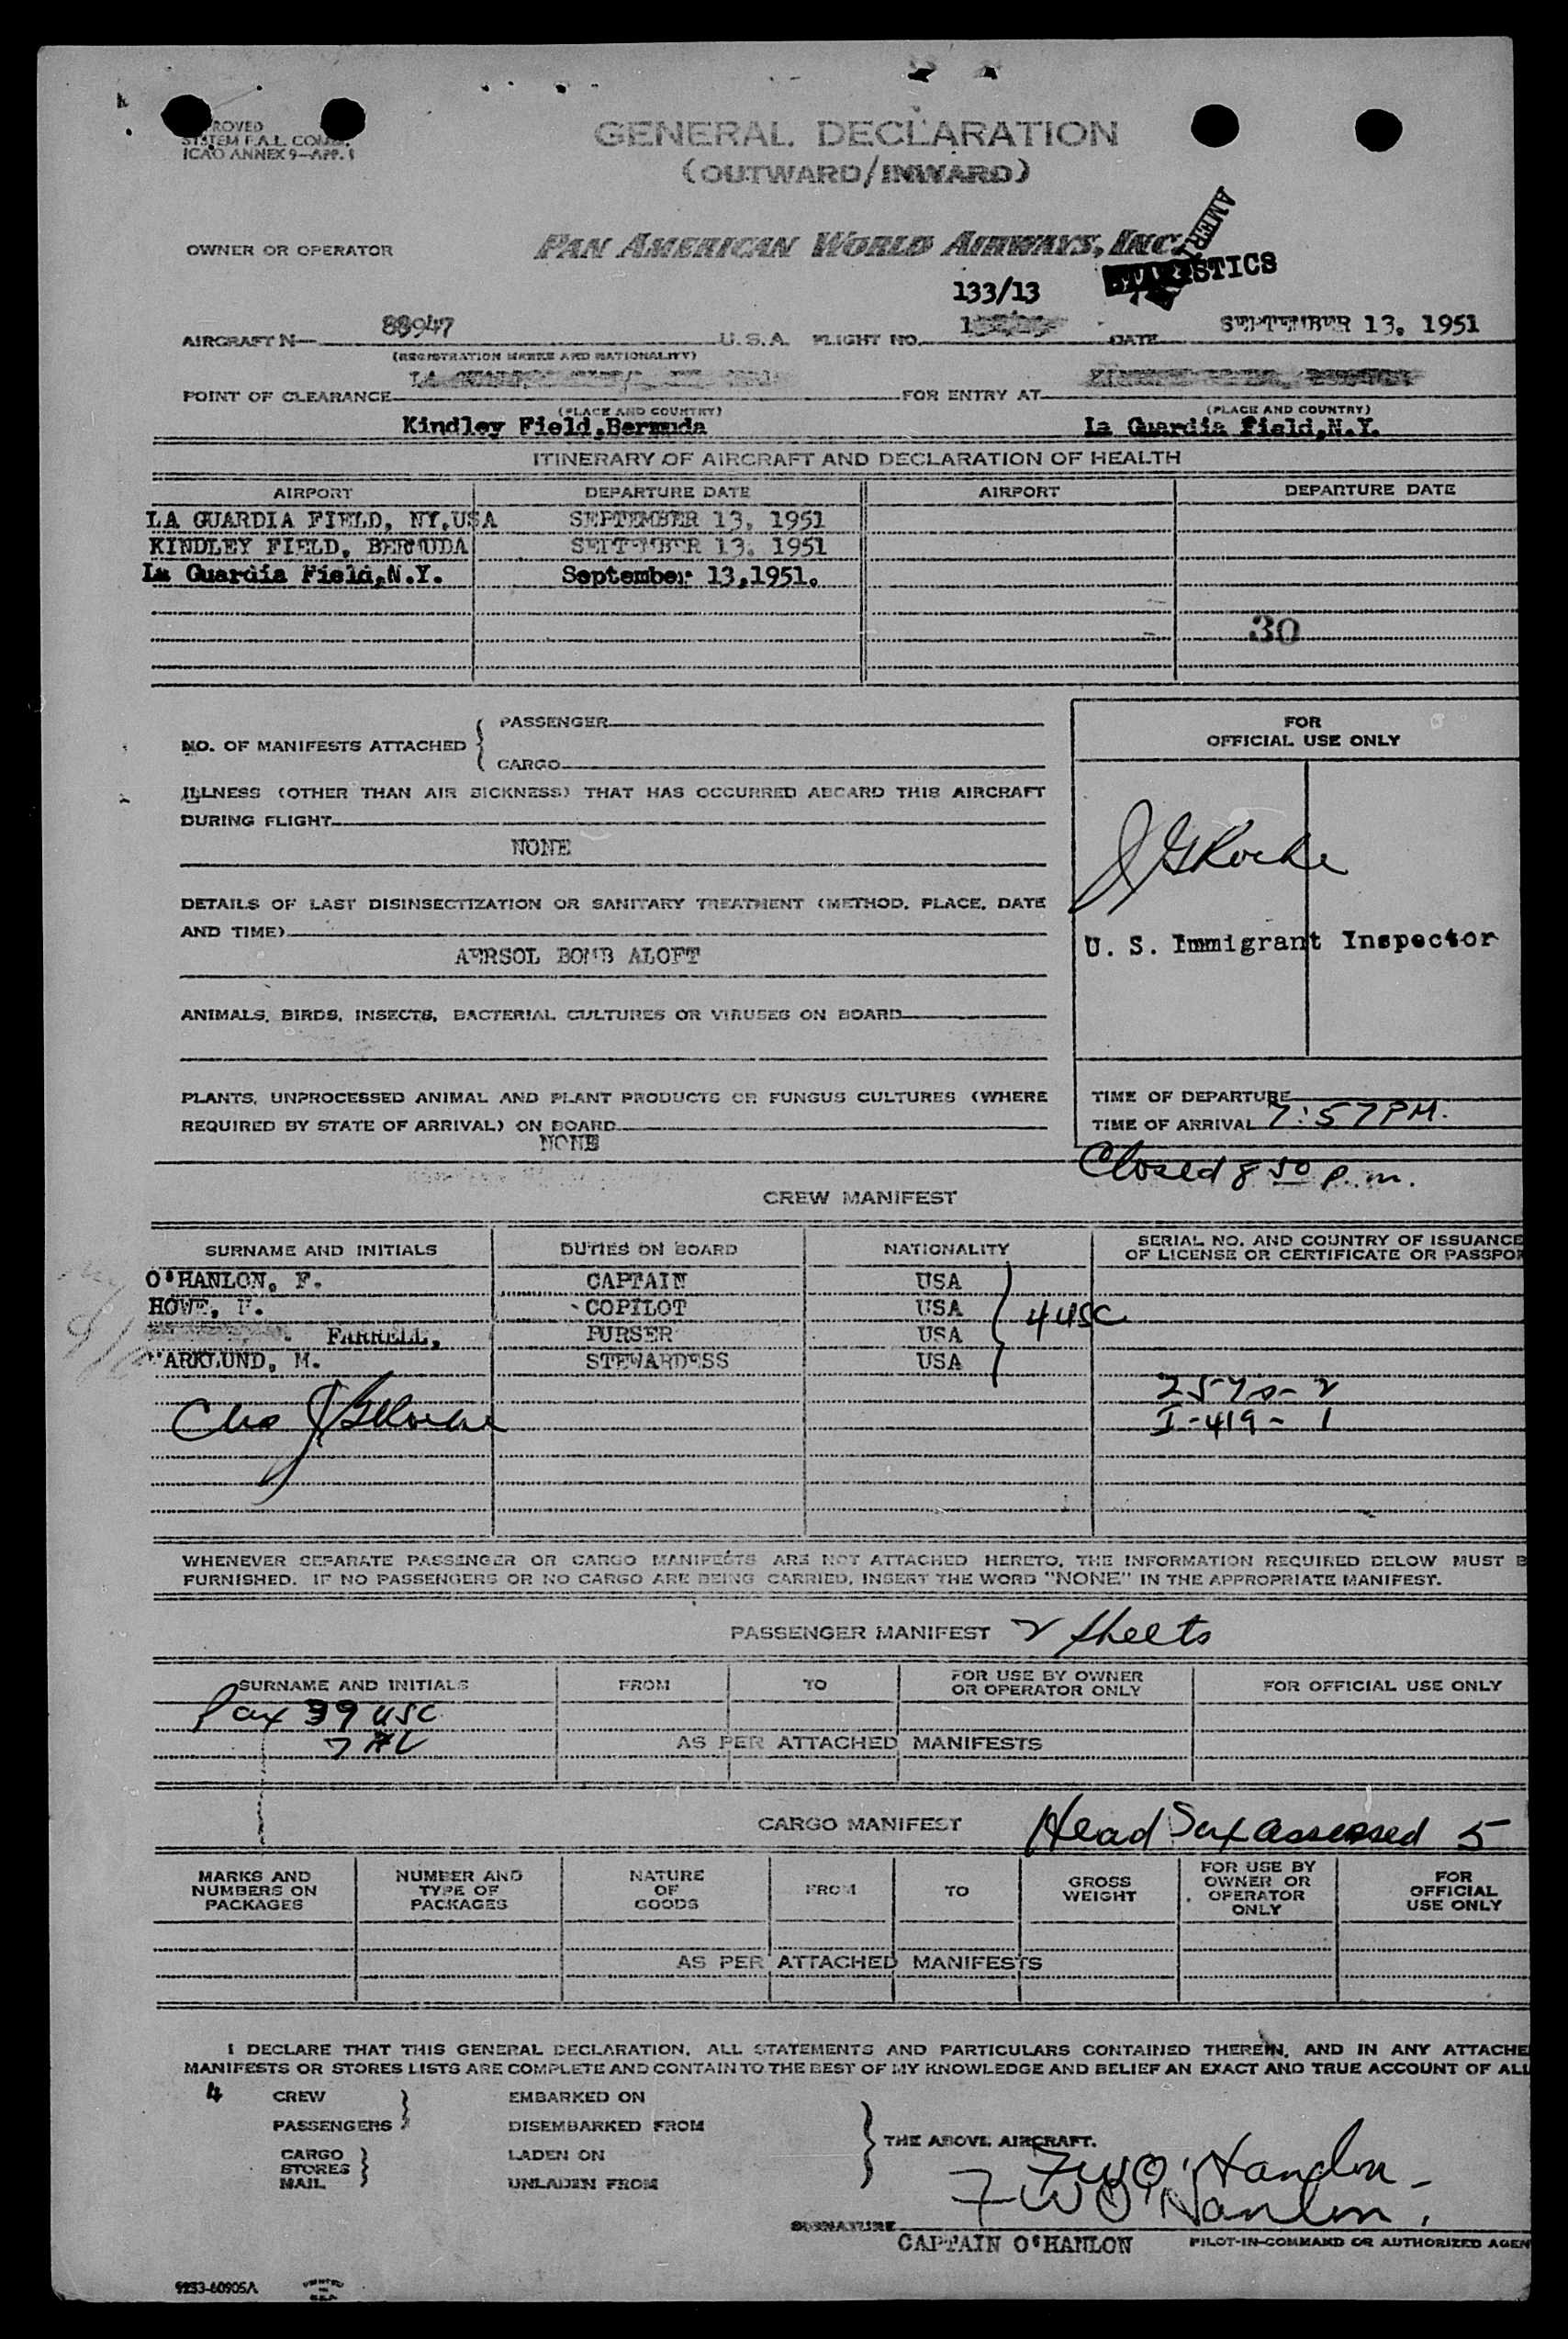 ROVED
SYSTEM F.A.L. COM
ICAO ANNEX 9—APP. 1
GENERAL DECLARATION
(OUTWARD/INWARD)
OWNER OR OPERATOR PAN AMERICAN WORLD AIRWAYS, INC.
AMER
STATISTICS
133/13
AIRCRAFT N— 88947 U.S.A. FLIGHT NO. DATE SEPTEMBER 13, 1951
(REGISTRATION MARKS AND NATIONALITY)
POINT OF CLEARANCE FOR ENTRY AT
(PLACE AND COUNTRY) (PLACE AND COUNTRY)
Kindley Field,Bermuda La Guardia Field,N.Y.
ITINERARY OF AIRCRAFT AND DECLARATION OF HEALTH
AIRPORT DEPARTURE DATE AIRPORT DEPARTURE DATE
LA GUARDIA FIELD, NY,USA SEPTEMBER 13, 1951
KINDLEY FIELD, BERMUDA SEPTEMBER 13. 1951
La Guardia Field,N.Y. September 13,1951.
30
NO. OF MANIFESTS ATTACHED { PASSENGER
CARGO
ILLNESS (OTHER THAN AIR SICKNESS) THAT HAS OCCURRED ABOARD THIS AIRCRAFT
DURING FLIGHT
NONE
DETAILS OF LAST DISINSECTIZATION OR SANITARY TREATMENT (METHOD, PLACE, DATE
AND TIME)
AERSOL BOMB ALOFT
ANIMALS, BIRDS, INSECTS, BACTERIAL CULTURES OR VIRUSES ON BOARD
PLANTS, UNPROCESSED ANIMAL AND PLANT PRODUCTS OR FUNGUS CULTURES (WHERE
REQUIRED BY STATE OF ARRIVAL) ON BOARD
NONE
FOR
OFFICIAL USE ONLY
J G Roche
U. S. Immigrant Inspector
TIME OF DEPARTURE
TIME OF ARRIVAL 7:57 PM.
Closed 8 50 p.m.
CREW MANIFEST
SURNAME AND INITIALS DUTIES ON BOARD NATIONALITY SERIAL NO. AND COUNTRY OF ISSUANCE
OF LICENSE OR CERTIFICATE OR PASSPOR
O'HANLON, F. CAPTAIN USA
HOWE, COPILOT USA 4 USC
FARRELL, PURSER USA
MARKLUND, M. STEWARDESS USA
257 - 2
I-419 - 1
WHENEVER SEPARATE PASSENGER OR CARGO MANIFESTS ARE NOT ATTACHED HERETO, THE INFORMATION REQUIRED BELOW MUST B
FURNISHED. IF NO PASSENGERS OR NO CARGO ARE BEING CARRIED, INSERT THE WORD "NONE" IN THE APPROPRIATE MANIFEST.
PASSENGER MANIFEST 2 sheets
SURNAME AND INITIALS FROM TO FOR USE BY OWNER
OR OPERATOR ONLY FOR OFFICIAL USE ONLY
Pax 39 USC
7 AL
AS PER ATTACHED MANIFESTS
CARGO MANIFEST Head Tax assessed 5
MARKS AND
NUMBERS ON
PACKAGES NUMBER AND
TYPE OF
PACKAGES NATURE
OF
GOODS FROM TO GROSS
WEIGHT FOR USE BY
OWNER OR
OPERATOR
ONLY FOR
OFFICIAL
USE ONLY
AS PER ATTACHED MANIFESTS
I DECLARE THAT THIS GENERAL DECLARATION, ALL STATEMENTS AND PARTICULARS CONTAINED THEREIN, AND IN ANY ATTACHE
MANIFESTS OR STORES LISTS ARE COMPLETE AND CONTAIN TO THE BEST OF MY KNOWLEDGE AND BELIEF AN EXACT AND TRUE ACCOUNT OF ALL
4 CREW EMBARKED ON
PASSENGERS DISEMBARKED FROM
THE ABOVE AIRCRAFT.
CARGO LADEN ON
STORES
MAIL UNLADEN FROM
FWO'Hanlon
FWO'Hanlon.
SIGNATURE
CAPTAIN O'HANLON PILOT-IN-COMMAND OR AUTHORIZED AGEN
9253-60905A PRINTED
IN
U.S.A.